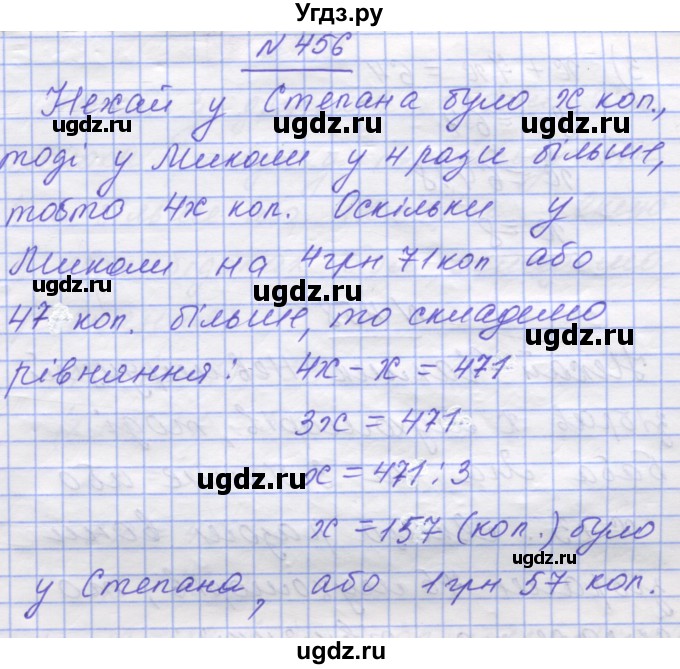 Угдз.ру
N 456
Нехай у Степана було x коп.,
ugdz.ru ugdz.ru ugdz.ru
тоді у Миколи у 4 рази більше,
тобто 4x коп. Оскільки у
ugdz.ru ugdz.ru
Миколи на 4грн 71коп або
ugdz.ru
47 коп. більше, то складемо
ugdz.ru
рівняння: 4x - x = 471
3x = 471
ugdz.ru
x = 471 : 3
x = 157 (коп.) було
ugdz.ru
у Степана, або 1грн 57 коп.
ugdz.ru
ugdz.ru